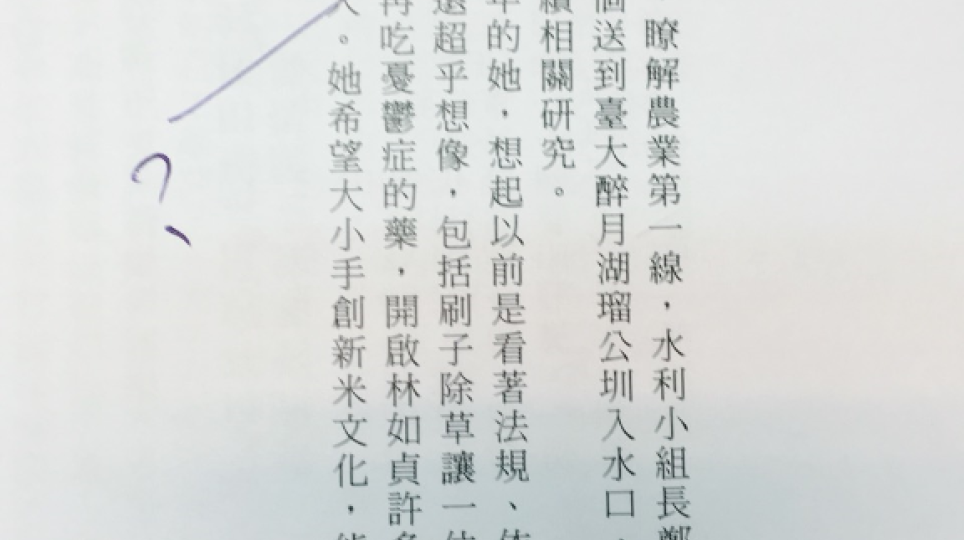 瞭解農業第一線，水利小組長鄭
個送到臺大醉月湖瑠公圳入水口，
續相關研究。
年的她，想起以前是看著法規、依
還超乎想像，包括刷子除草讓一
再吃憂鬱症的藥，開啟林如貞許多
人。她希望大小手創新米文化，能
?